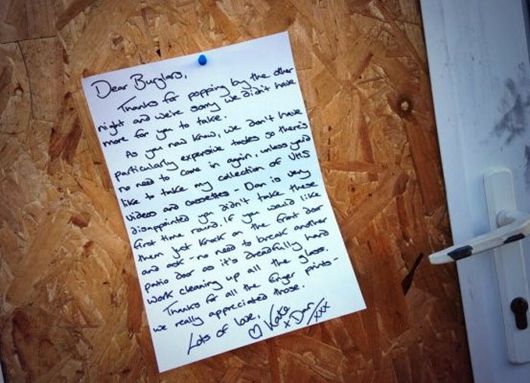 Dear Burglars,
Thanks for popping by the other
night and we're sorry we didn't have
more for you to take.
As you now know, we don't have
particularly expensive tastes so there's
no need to come in again, unless you'd
like to take my collection of VHS
videos and cassettes - Dan is very
disappointed you didn't take these
first time round. If you would like
them just knock on the front door
and ask - no need to break another
patio door as it's dreadfully hard
work cleaning up all the glass.
Thanks for all the finger prints -
we really appreciated those.
Lots of love,
♡ Kate
x Dan xxx